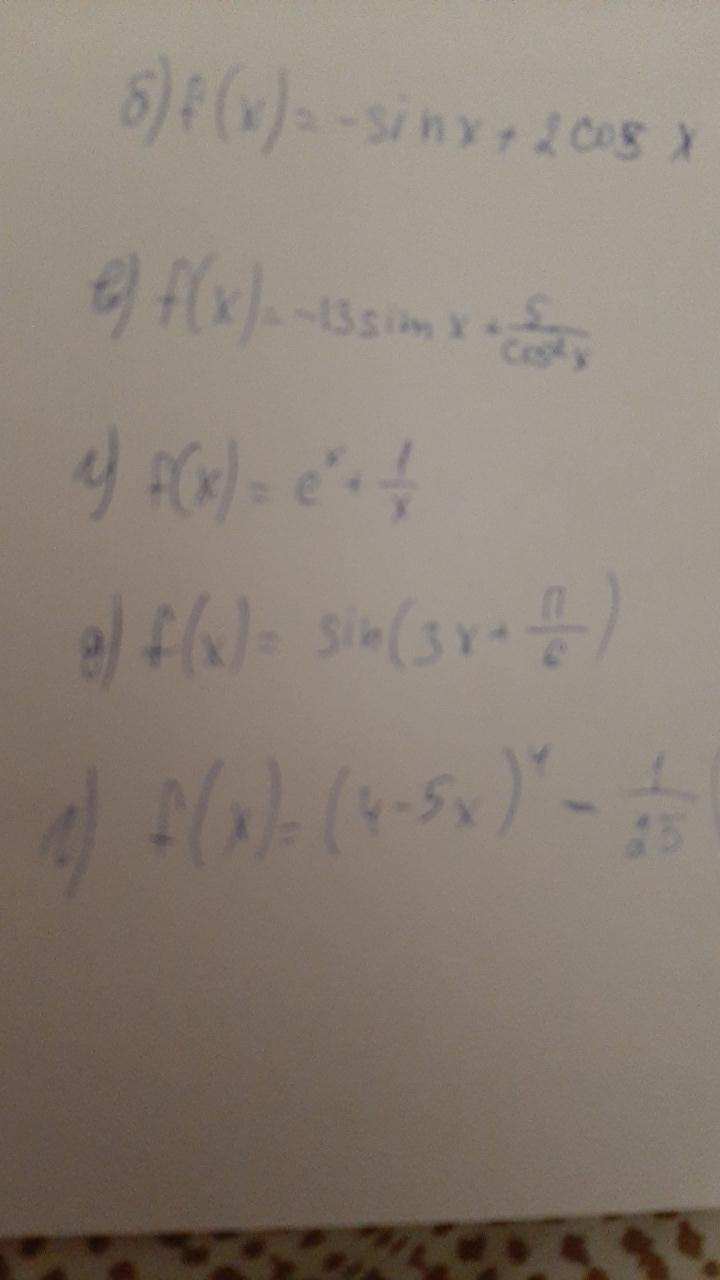 б) f(x) = -sin x + 2 cos x
e) f(x) = -13 sin x + 5/cos²x
f(x) = eˣ + 1/x
f(x) = sin(3x + π/6)
f(x) = (4-5x)⁴ - 1/25 (